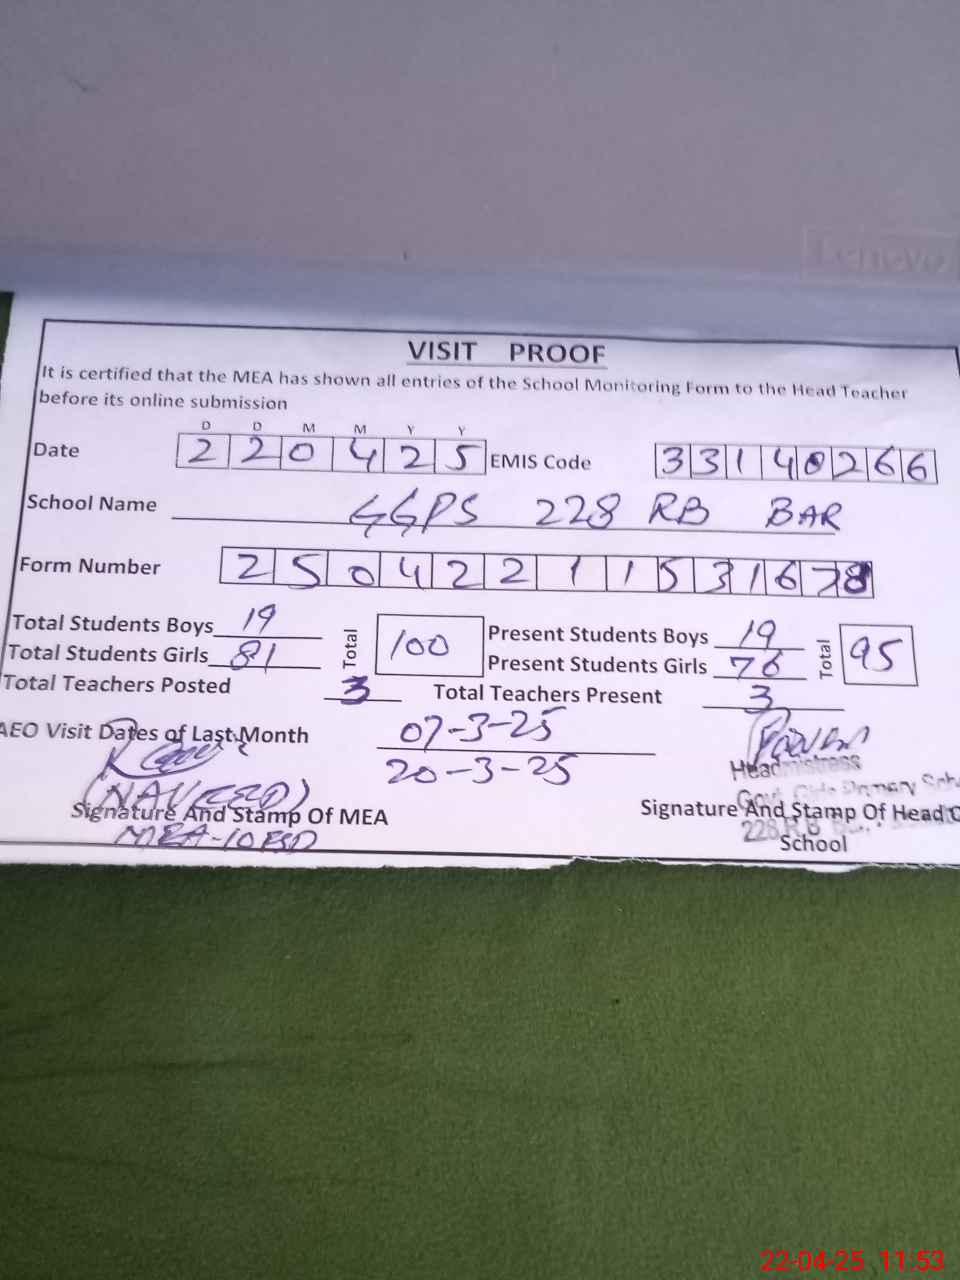 Lenovo
VISIT PROOF
It is certified that the MEA has shown all entries of the School Monitoring Form to the Head Teacher
before its online submission
D D M M Y Y
Date 2 2 0 4 2 5 EMIS Code 3 3 1 4 0 2 6 6
School Name GGPS 228 RB BAR
Form Number 2 5 0 4 2 2 1 1 5 3 1 6 7 8
Total Students Boys 19 Total 100 Present Students Boys 19 Total 95
Total Students Girls 81 Present Students Girls 76
Total Teachers Posted 3 Total Teachers Present 3
AEO Visit Dates of Last Month 07-3-25
20-3-25
Headmistress
(NAVEED) Govt. Girls Primary Sch
Signature And Stamp Of MEA Signature And Stamp Of Head O
MEA-10 FSD 228 R.B
School
22-04-25 11:53